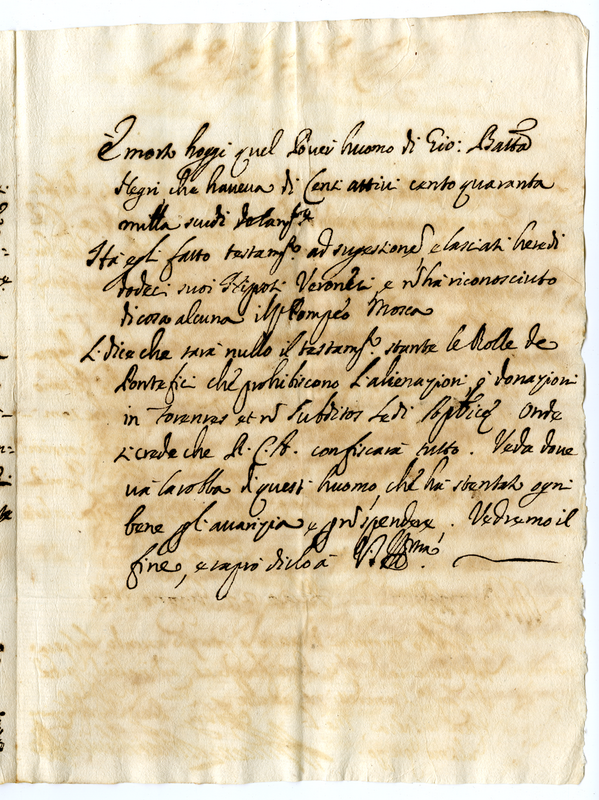 È morto hoggi quel Pover huomo di Gio: Batta
Negri che haveva di Censi attivi cento quaranta
milla scudi
Ha egli fatto testamto. ad sugestione e lasciati heredi
dodeci suoi Nipoti Veronesi, e nō ha riconosciuto
di cosa alcuna il Sr Pompeo Mosca
Si dice che sarà nullo il testamto. stante le Bolle de
Pontefici che prohibiscono l'alienazioni o donazioni
in Forenses et nō Subditos Sedi Aplicę Onde
si crede che R. C. A. confiscarà tutto. Veda dove
và la robba di questi huomo, che hà stentato ogni
bene per avarizia e per nō spendere. Vedremo il
fine, e saprò dirlo à V. S. Illma.